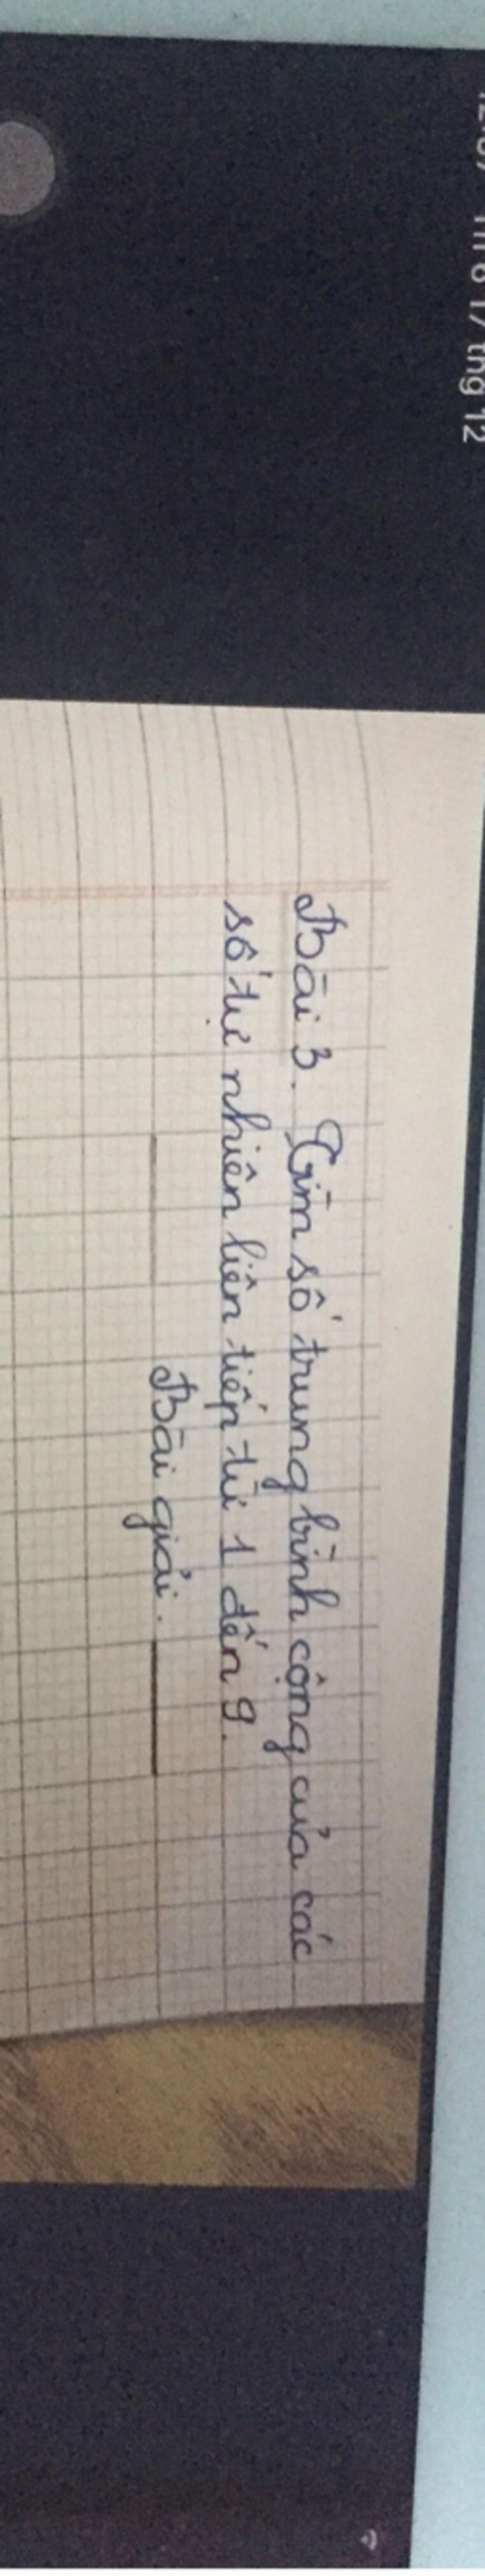 Th 6 17 thg 12
Bài 3. Tìm số trung bình cộng của các
số tự nhiên liên tiếp từ 1 đến 9.
Bài giải.